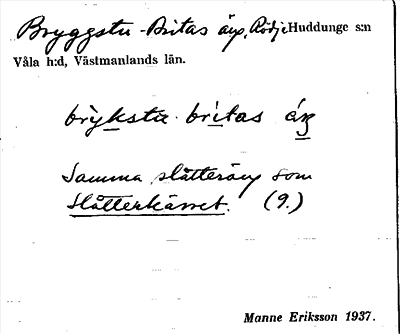 Bryggstu-Britas äng, Rödje Huddunge s:n
Våla h:d, Västmanlands län.
brỳkstu brìtas áŋ
Samma slåtteräng som
Slåtterkärret. (9.)
Manne Eriksson 1937.